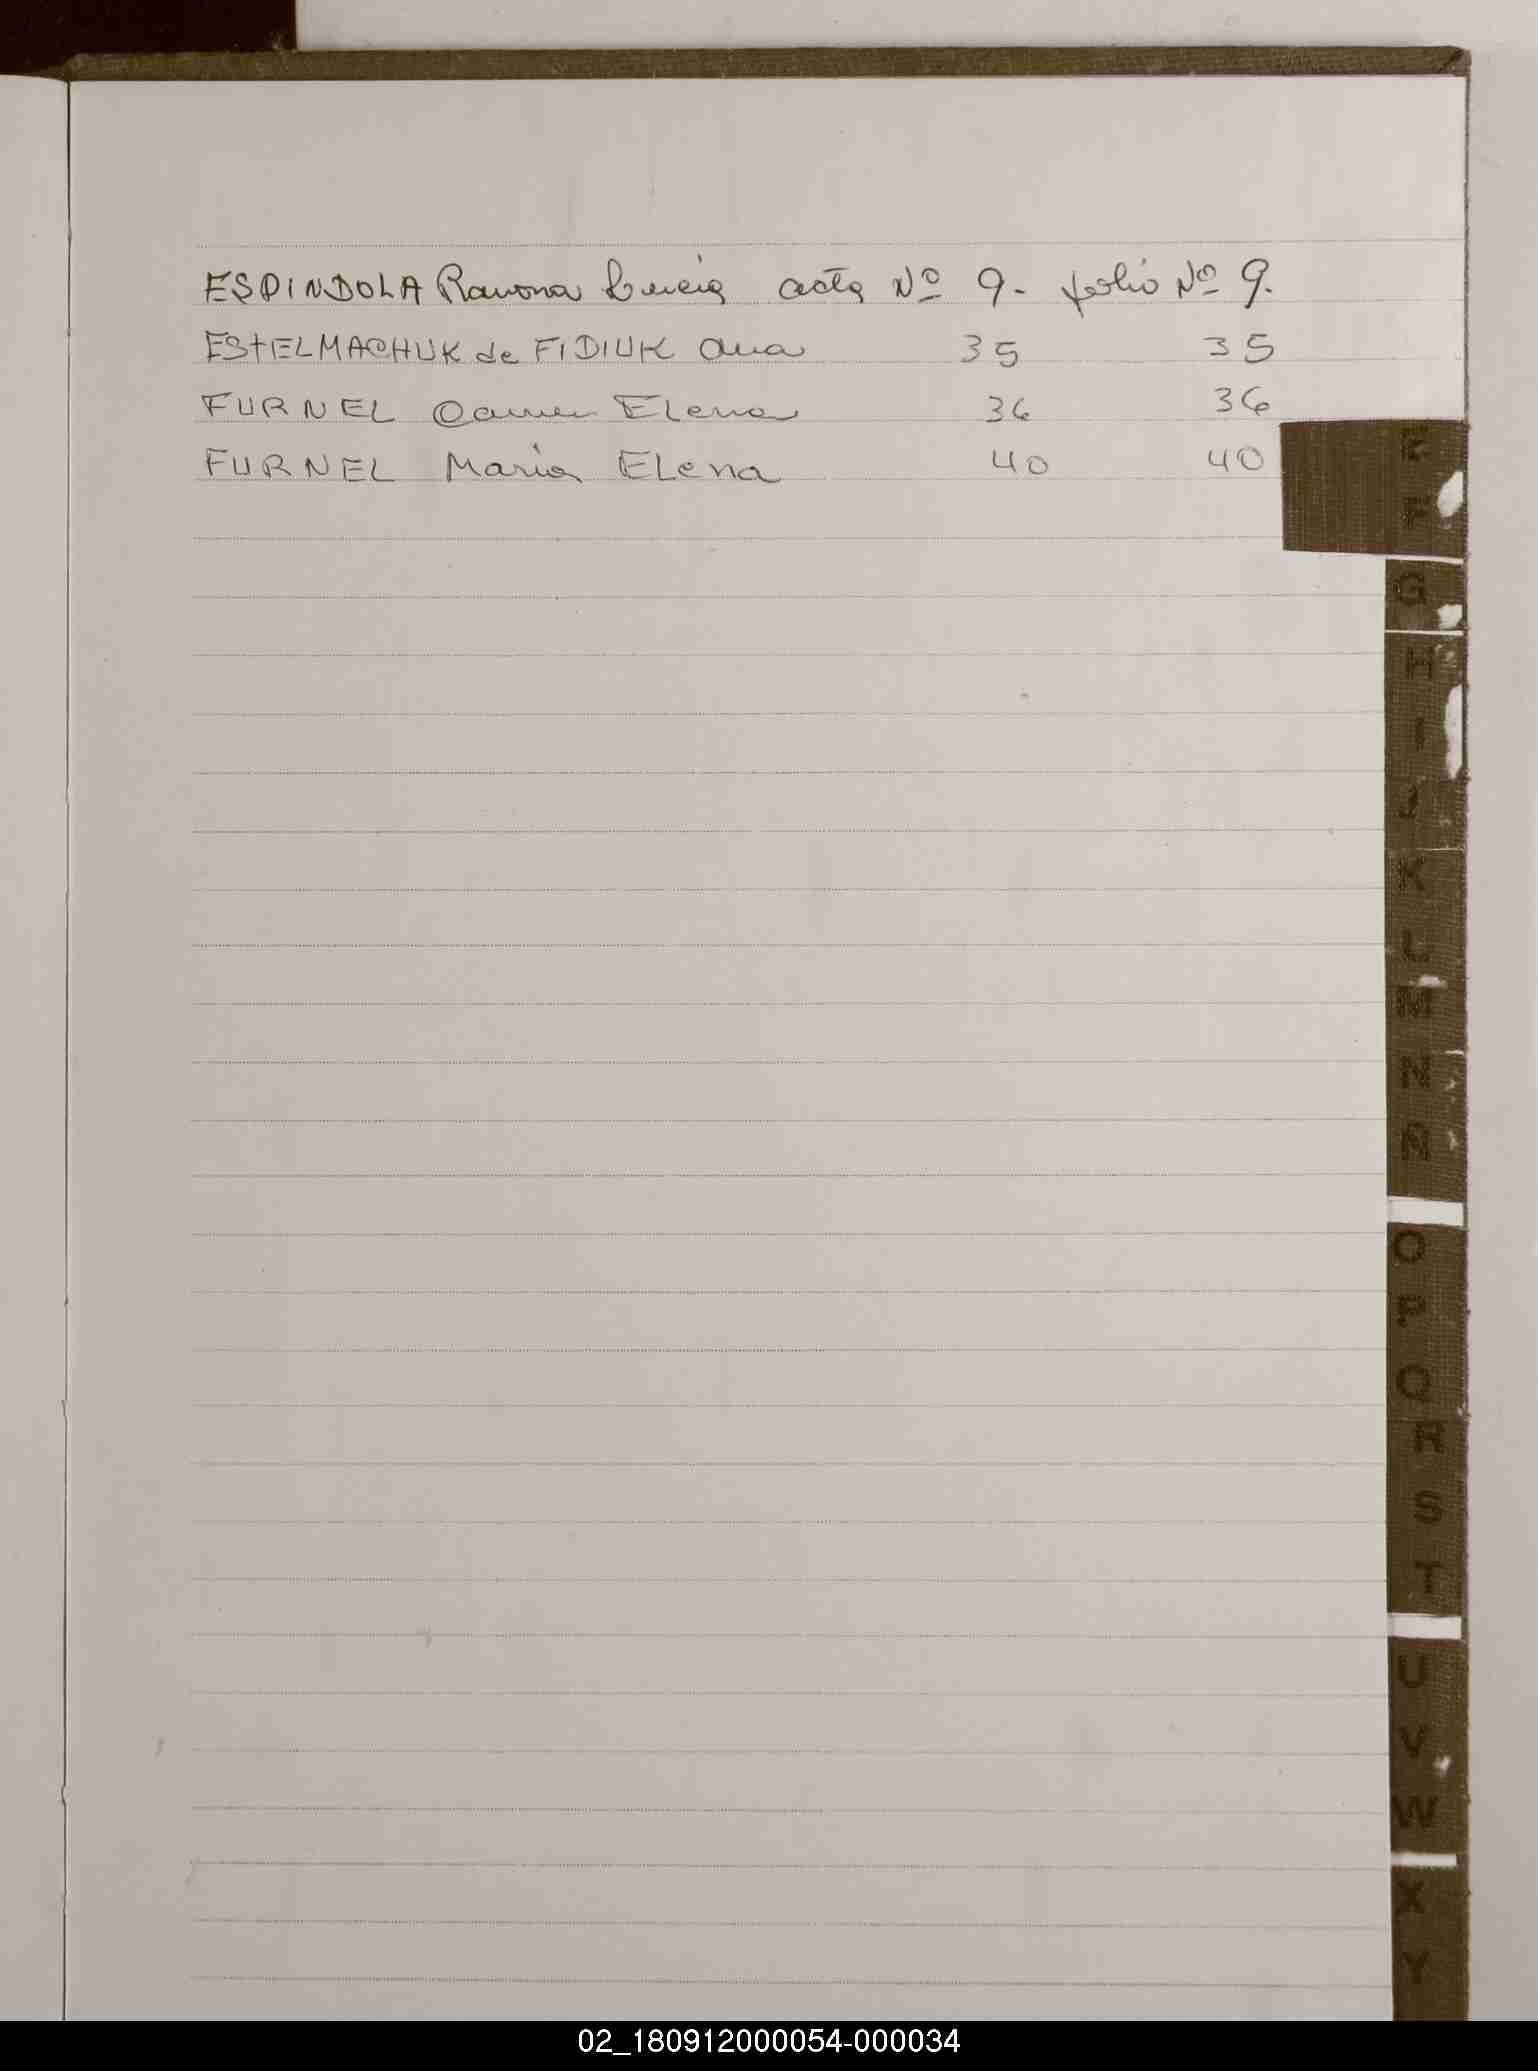 ESPINDOLA Ramona Lucia acta Nº 9. folio Nº 9.
ESTELMACHUK de FIDIUK Ana 35 35
FURNEL Carmen Elena 36 36
FURNEL Maria Elena 40 40
E
F
G
H
I
J
K
L
M
N
Ñ
O
P
Q
R
S
T
U
V
W
X
Y
02_180912000054-000034